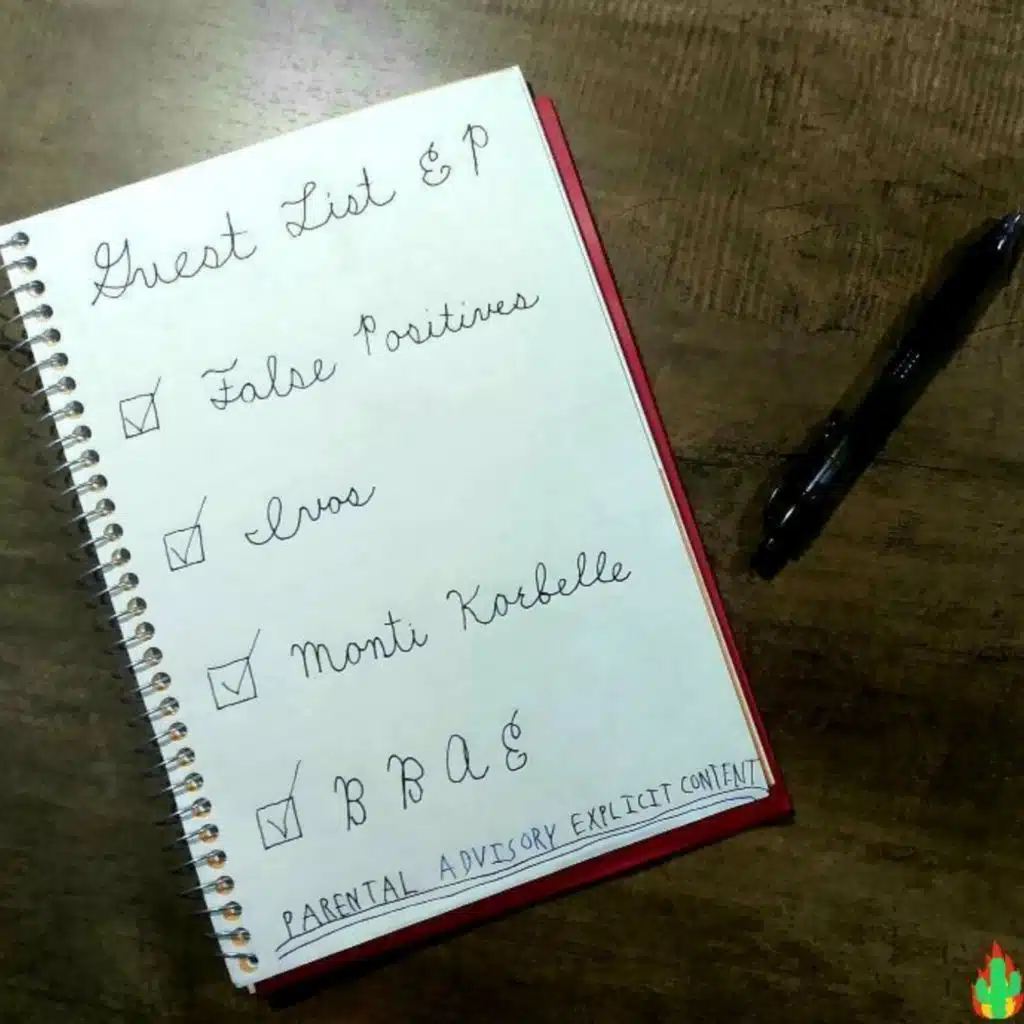 Guest List EP
False Positives
Ivos
Monti Korbelle
B B A E
PARENTAL ADVISORY EXPLICIT CONTENT